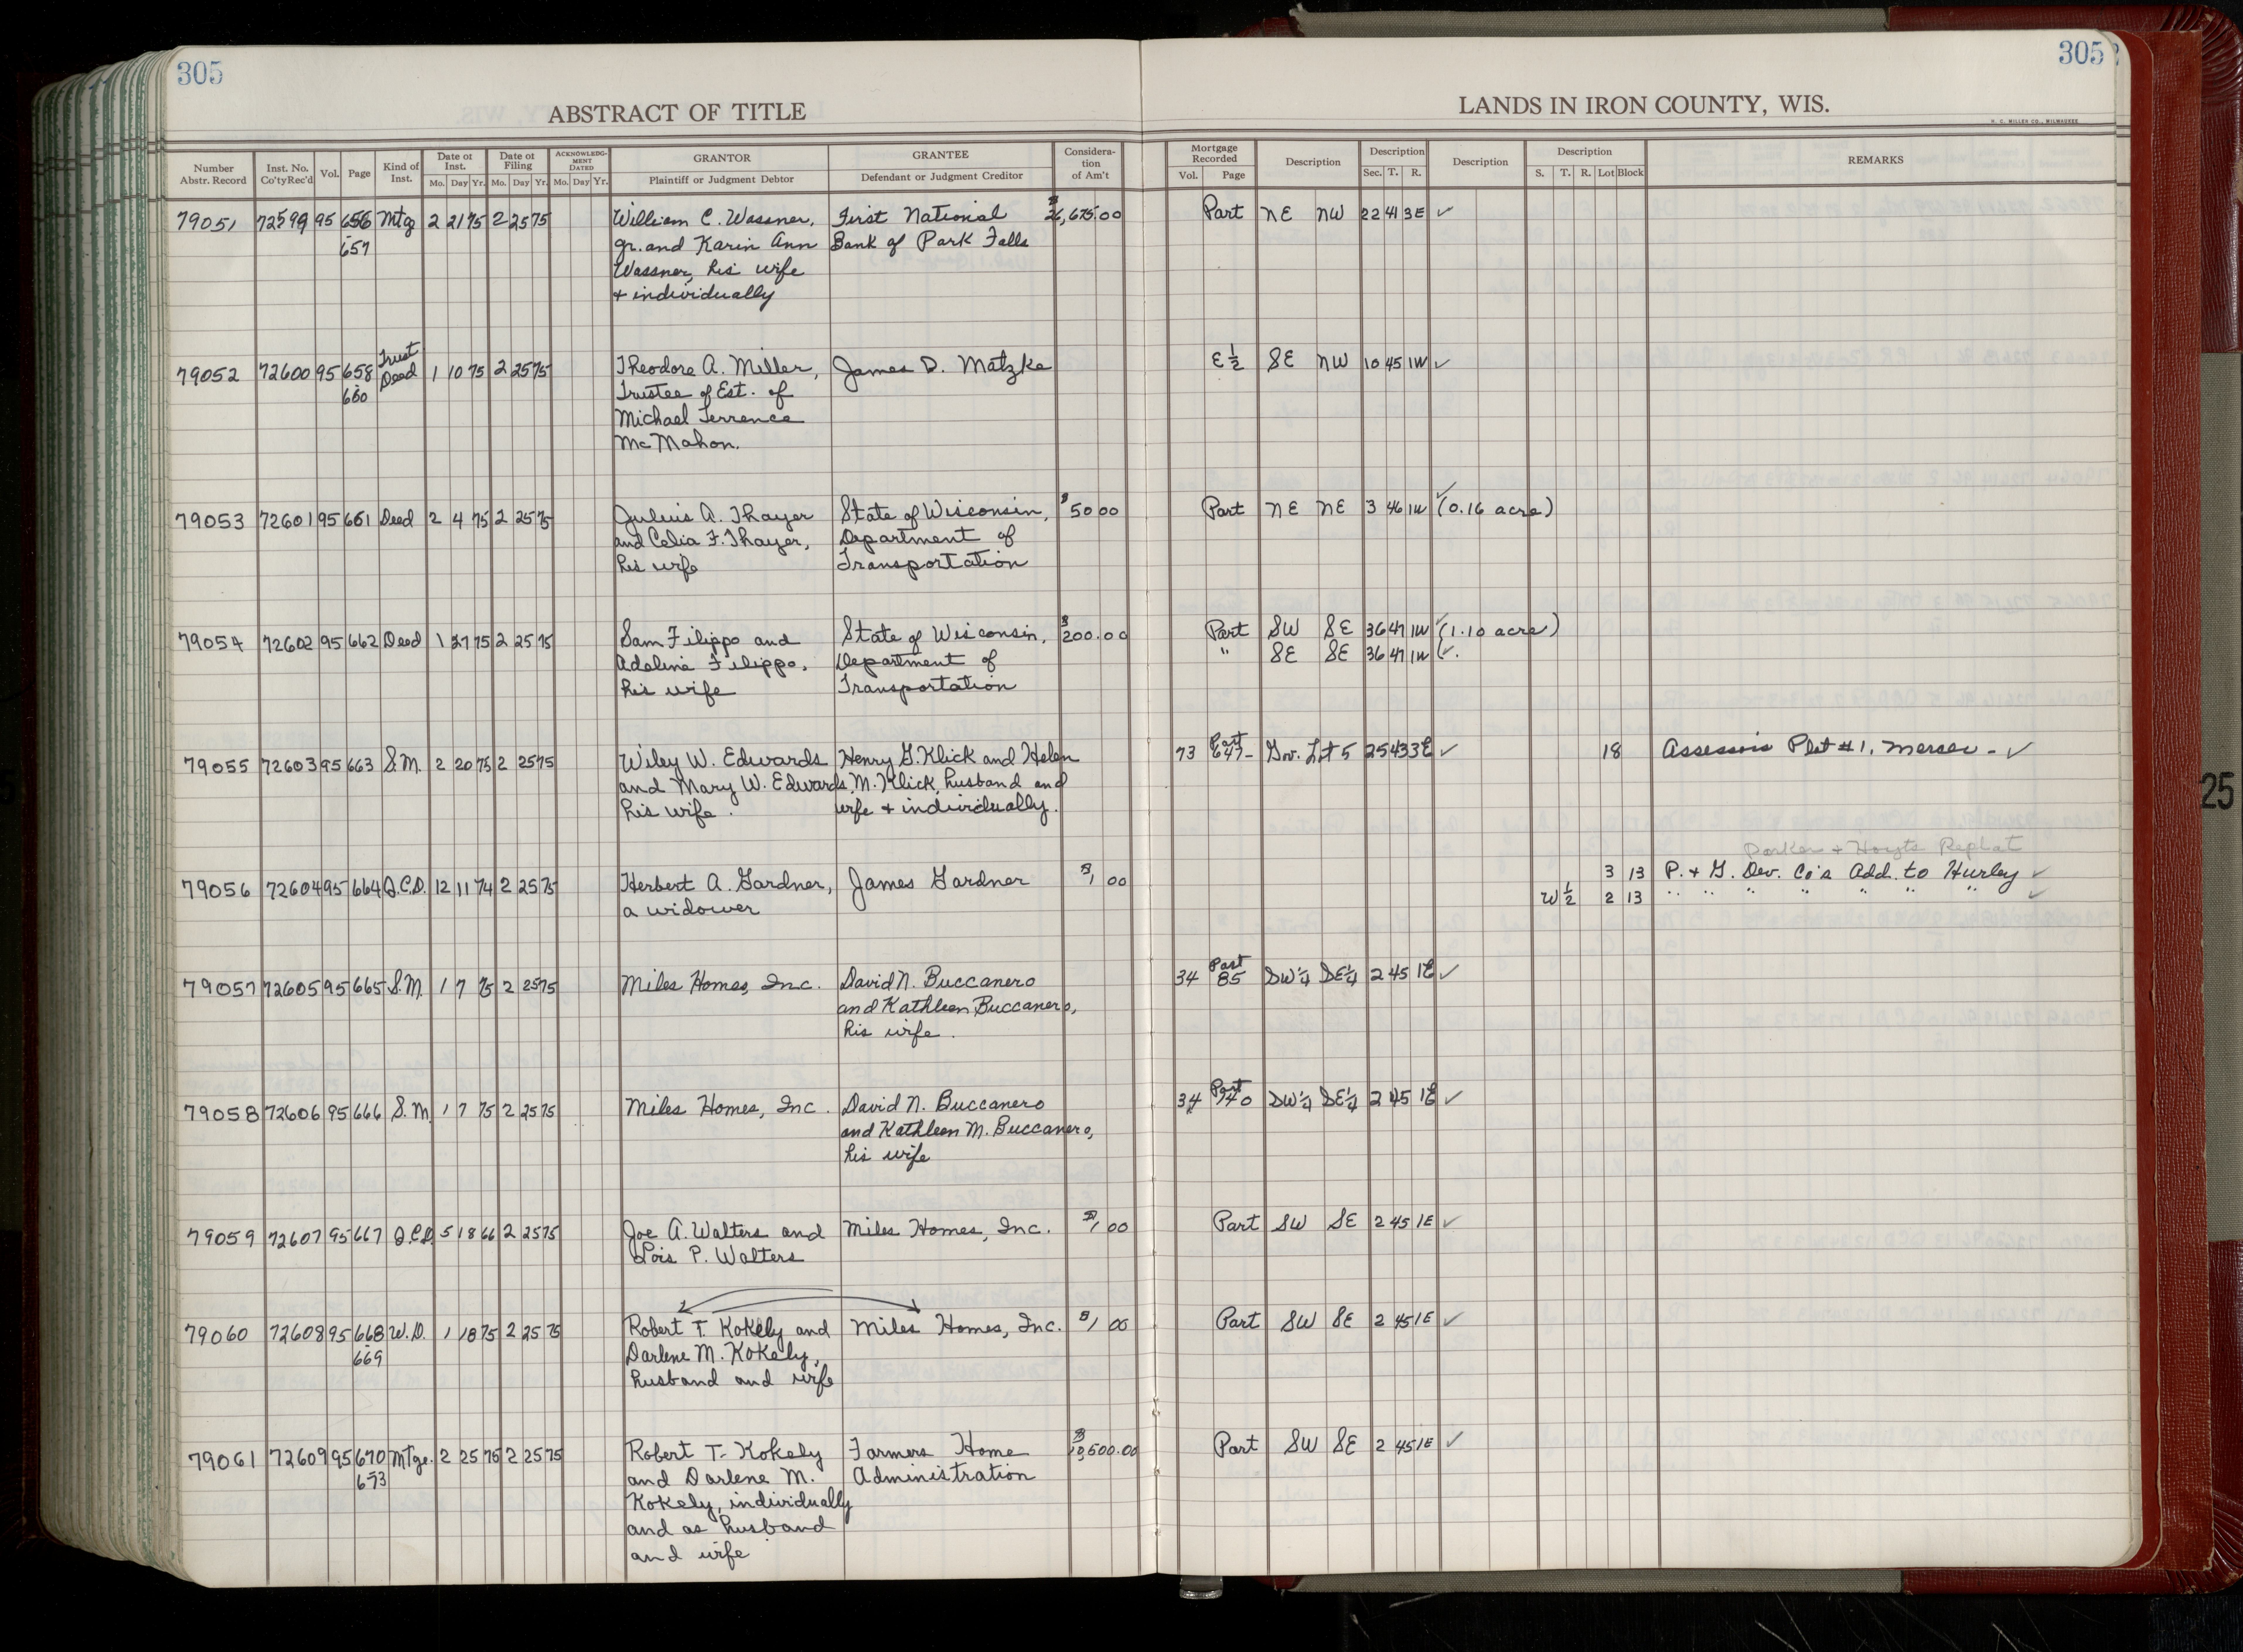 305
305
ABSTRACT OF TITLE
LANDS IN IRON COUNTY, WIS.
H. C. MILLER CO., MILWAUKEE
Number Abstr. Record Inst. No. Co'ty Rec'd Vol. Page Kind of Inst. Date of Inst. Mo. Day Yr. Date of Filing Mo. Day Yr. ACKNOWLEDGMENT DATED Mo. Day Yr. GRANTOR Plaintiff or Judgment Debtor GRANTEE Defendant or Judgment Creditor Consideration of Am't Mortgage Recorded Vol. Page Description Description Sec. T. R. Description Description S. T. R. Lot Block REMARKS
79051 72599 95 656 Mtg 2 21 75 2 25 75 William C. Wassner, First National $26,675.00 Part NE NW 22 41 3E ✓
- 657 Jr. and Karin Ann Bank of Park Falls
Wassner, his wife
+ individually
79052 72600 95 658 Trust Deed 1 10 75 2 25 75 Theodore A. Miller, James D. Matzke E ½ SE NW 10 45 1W ✓
- 660 Trustee of Est. of
Michael Terrence
McMahon.
79053 72601 95 661 Deed 2 4 75 2 25 75 Julius A. Thayer State of Wisconsin, $50 00 Part NE NE 3 46 1W ✓ (0.16 acre)
and Celia F. Thayer, Department of
his wife Transportation
79054 72602 95 662 Deed 1 27 75 2 25 75 Sam Filippo and State of Wisconsin, $200.00 Part SW SE 36 47 1W ✓ (1.10 acre)
Adeline Filippo, Department of " SE SE 36 47 1W ✓
his wife Transportation
79055 72603 95 663 S.M. 2 20 75 2 25 75 Wiley W. Edwards Henry G. Klick and Helen 73 Part 647- Gov. Lot 5 25 43 3E ✓ 18 Assessor's Plat #1, Mercer - ✓
and Mary W. Edwards, M. Klick, husband and
his wife. wife + individually.
Parker + Hoyts Replat
79056 72604 95 664 Q.C.D. 12 11 74 2 25 75 Herbert A. Gardner, James Gardner $1 00 3 13 P. + G. Dev. Co's Add. to Hurley ✓
a widower W ½ 2 13 " " " " " " ✓
79057 72605 95 665 S.M. 1 7 75 2 25 75 Miles Homes, Inc. David N. Buccanero 34 Part 85 SW¼ SE¼ 2 45 1E ✓
and Kathleen Buccanero,
his wife.
79058 72606 95 666 S.M. 1 7 75 2 25 75 Miles Homes, Inc. David N. Buccanero 34 Part SW¼ SE¼ 2 45 1E ✓
and Kathleen M. Buccanero,
his wife
79059 72607 95 667 Q.C.D. 5 18 66 2 25 75 Joe A. Walters and Miles Homes, Inc. $1 00 Part SW SE 2 45 1E ✓
Lois P. Walters
79060 72608 95 668 W.D. 1 18 75 2 25 75 Robert T. Kokely and Miles Homes, Inc. $1 00 Part SW SE 2 45 1E ✓
- 669 Darlene M. Kokely,
husband and wife
79061 72609 95 670 Mtge. 2 25 75 2 25 75 Robert T. Kokely Farmers Home Part SW SE 2 45 1E ✓
- 673 and Darlene M. Administration
Kokely, individually
and as husband
and wife
25